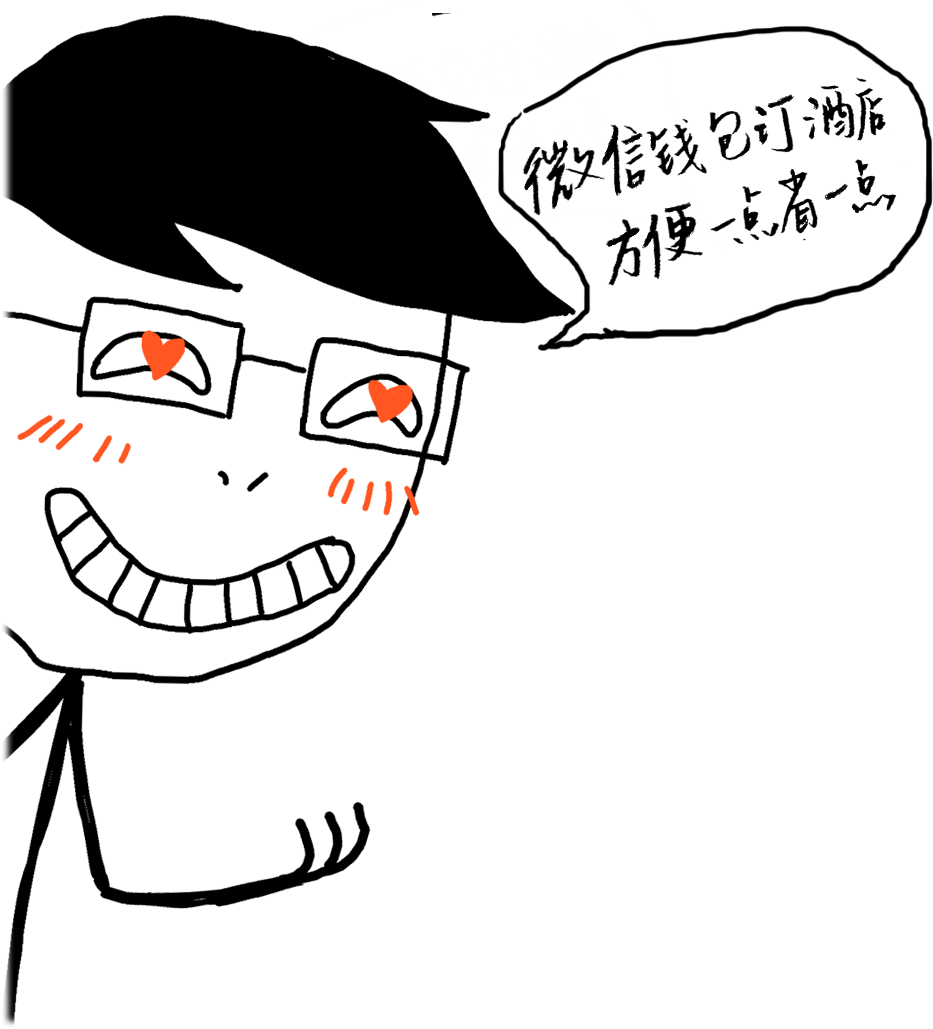 微信钱包订酒店
方便一点省一点